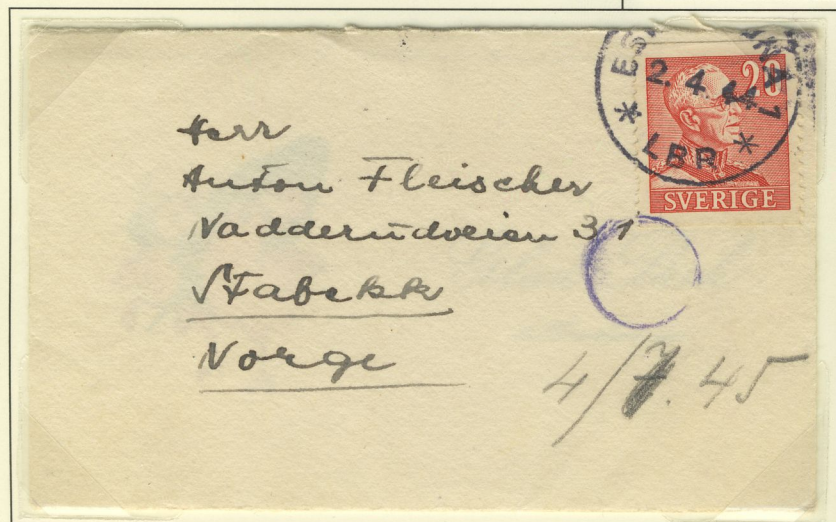 ES
NA 1
2. 4. 44
* LBR *
20
SVERIGE
Herr
Anton Fleischer
Nadderudveien 31
Stabekk
Norge
4/7. 45